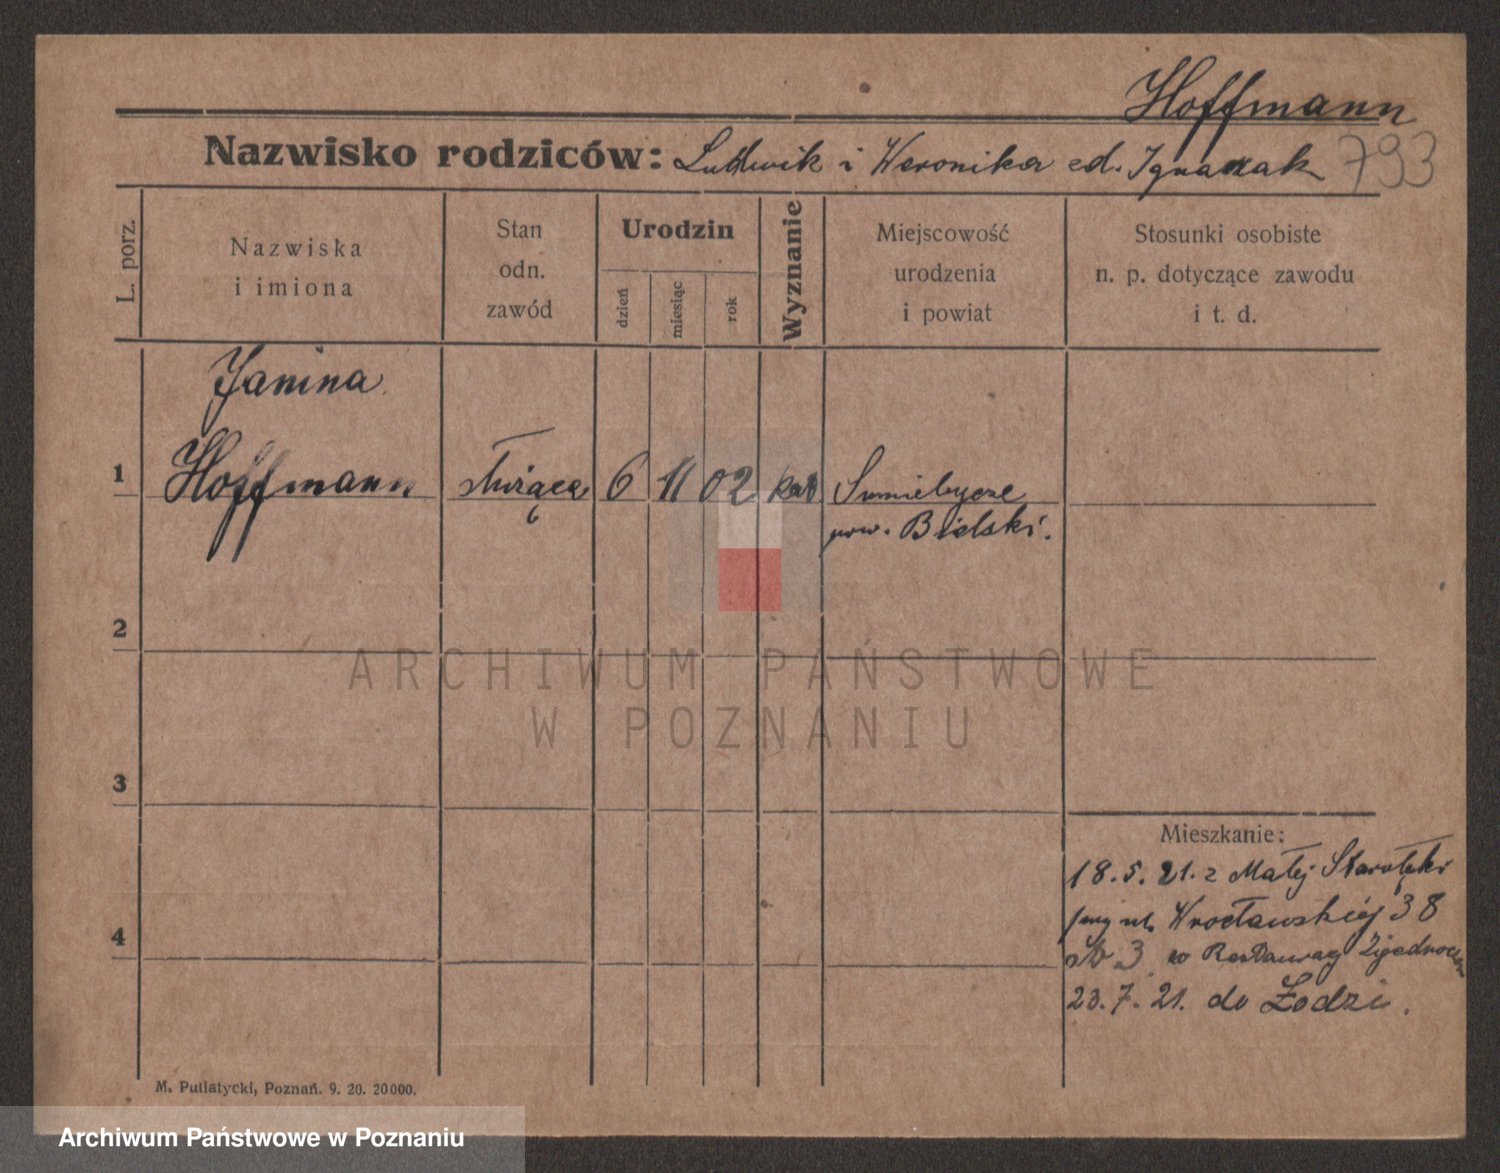 Hoffmann
Nazwisko rodziców: Ludwik i Weronika cd. Ignaszak 793
L. porz.
Nazwiska
i imiona
Stan
odn.
zawód
Urodzin
dzień
miesiąc
rok
Wyznanie
Miejscowość
urodzenia
i powiat
Stosunki osobiste
n. p. dotyczące zawodu
i t. d.
Janina
1 Hoffmann służąca 6 11 02 kat
pow. Bielski.
2
3
4
Mieszkanie:
18.5.21. z Małej Starołęki
ul. Wrocławskiej 38
3 w
23.7.21. do Łodzi.
M. Putiatycki, Poznań. 9. 20. 20000.
ARCHIWUM PAŃSTWOWE
W POZNANIU
Archiwum Państwowe w Poznaniu